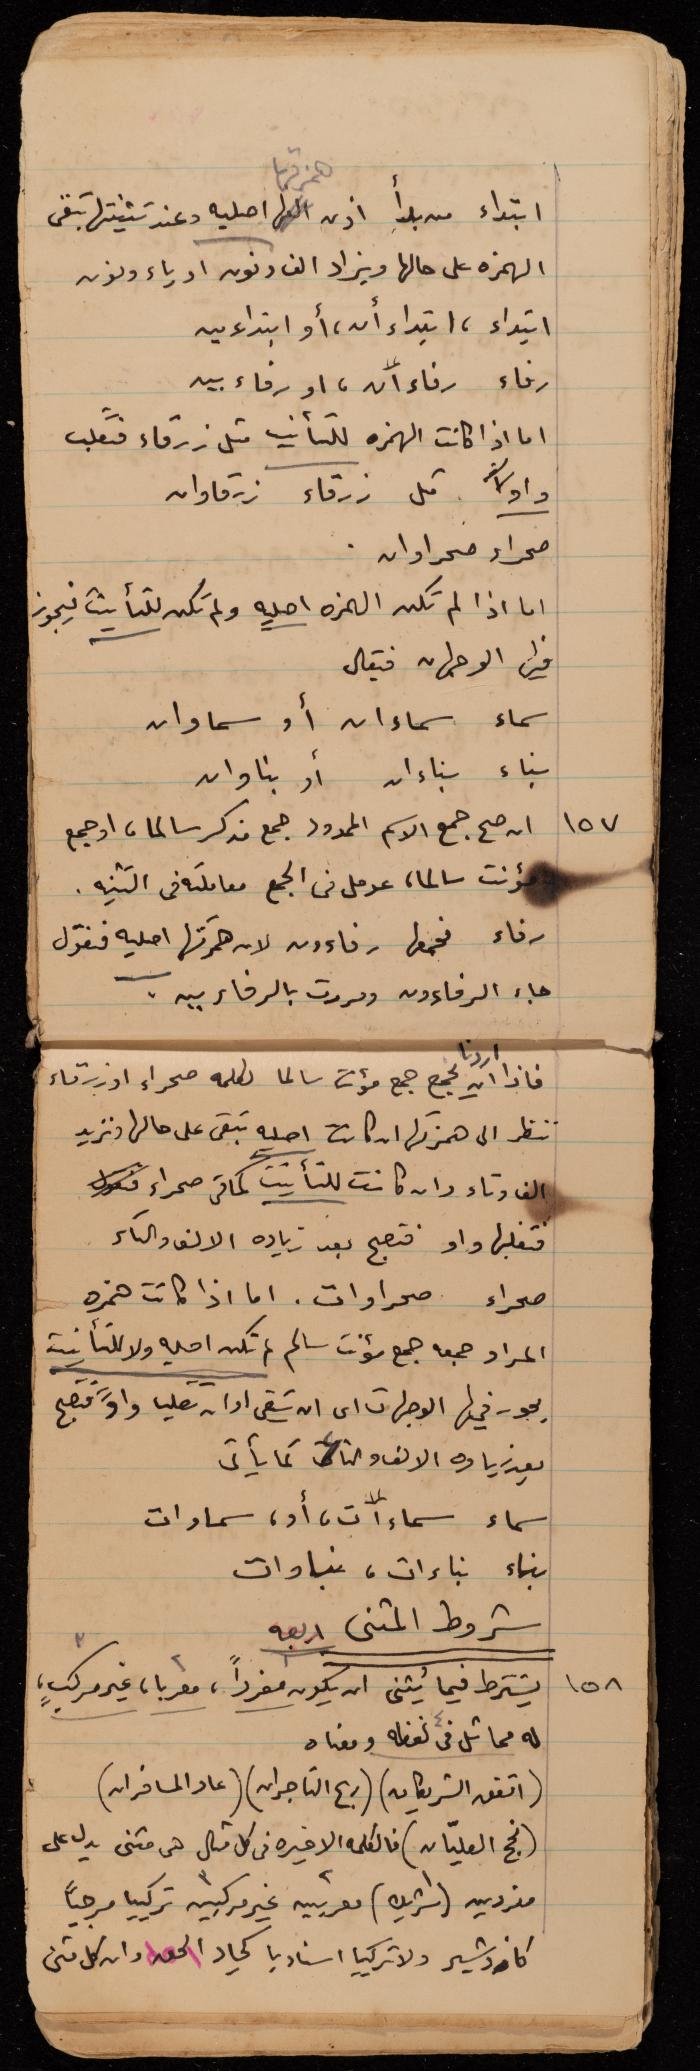 همزتها
ابتداء من بدأ اذن اصليه وعند تثنيتها تبقى
الهمزه على حالها ويزاد الف ونون او ياء ونون
ابتداء ، ابتداء أن ، أو ابتداءين
رفاء رفاءان ، او رفاءين
اما اذا كانت الهمزه للتأنيث مثل زرقاء فتقلب
واواً . مثل زرقاء زرقاوان
صحراء صحراوان .
اما اذا لم تكن الهمزه اصليه ولم تكن للتأنيث فيجوز
فيها الوجهان فيقال
سماء سماءان أو سماوان
بناء بناءان أو بناوان
١٥٧ ان صح جمع الاسم الممدود جمع مذكر سالما ، او جمع
مؤنث سالما ، عومل فى الجمع معاملته فى التثنيه .
رفاء فجمعها رفاءون لان همزتها اصليه فنقول
جاء الرفاءون ومررت بالرفاءين .
فاذا اردنا جمع مؤنث سالما لكلمه صحراء او زرقاء
ننظر الى همزتها ان كانت اصليه تبقى على حالها ونزيد
الف وتاء وان كانت للتأنيث كما فى صحراء
فتقلبها واو فتصبح بعد زياده الالف والتاء
صحراء صحراوات . اما اذا كانت همزه
المراد جمعه جمع مؤنث سالم لم تكن اصليه ولا للتأنيث
يجوز فيها الوجهان اى ان تبقى او ان تقلبها واوً فتصبح
بعد زياده الالف والتاء كما يأتى
سماء سماءات ، أو ، سماوات
بناء بناءات ، بناوات
شروط المثنى اربعه
١٥٨ يشترط فيما يُثنى ان يكون مفرداً ، معربا ، غير مركبٍ ،
له مماثل فى لفظه ومعناه
(اتفق الشريكان) (ربح التاجران) (عاد المسافران)
(نجح العليّان) فالكلمه الاخيره فى كل مثال هى مثنى يدل على
مفردين معربين غير مركبين تركيبا مزجياً
كازدشير ولا تركيبا اسناديا كجاد الحق وان كل مثنى